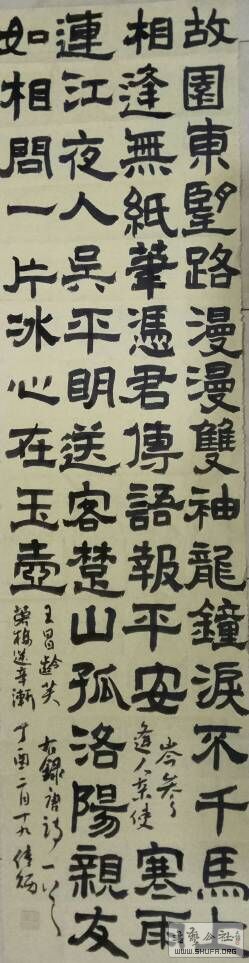 故園東望路漫漫雙袖龍鐘淚不千馬上
相逢無紙筆憑君傳語報平安
岑参
逢入京使
寒雨
連江夜入吳平明送客楚山孤洛陽親友
如相問一片冰心在玉壺
王昌齡芙 右錄唐詩一首
蓉樓送辛漸 丁酉二月十九
书艺公社
WWW.SHUFA.ORG